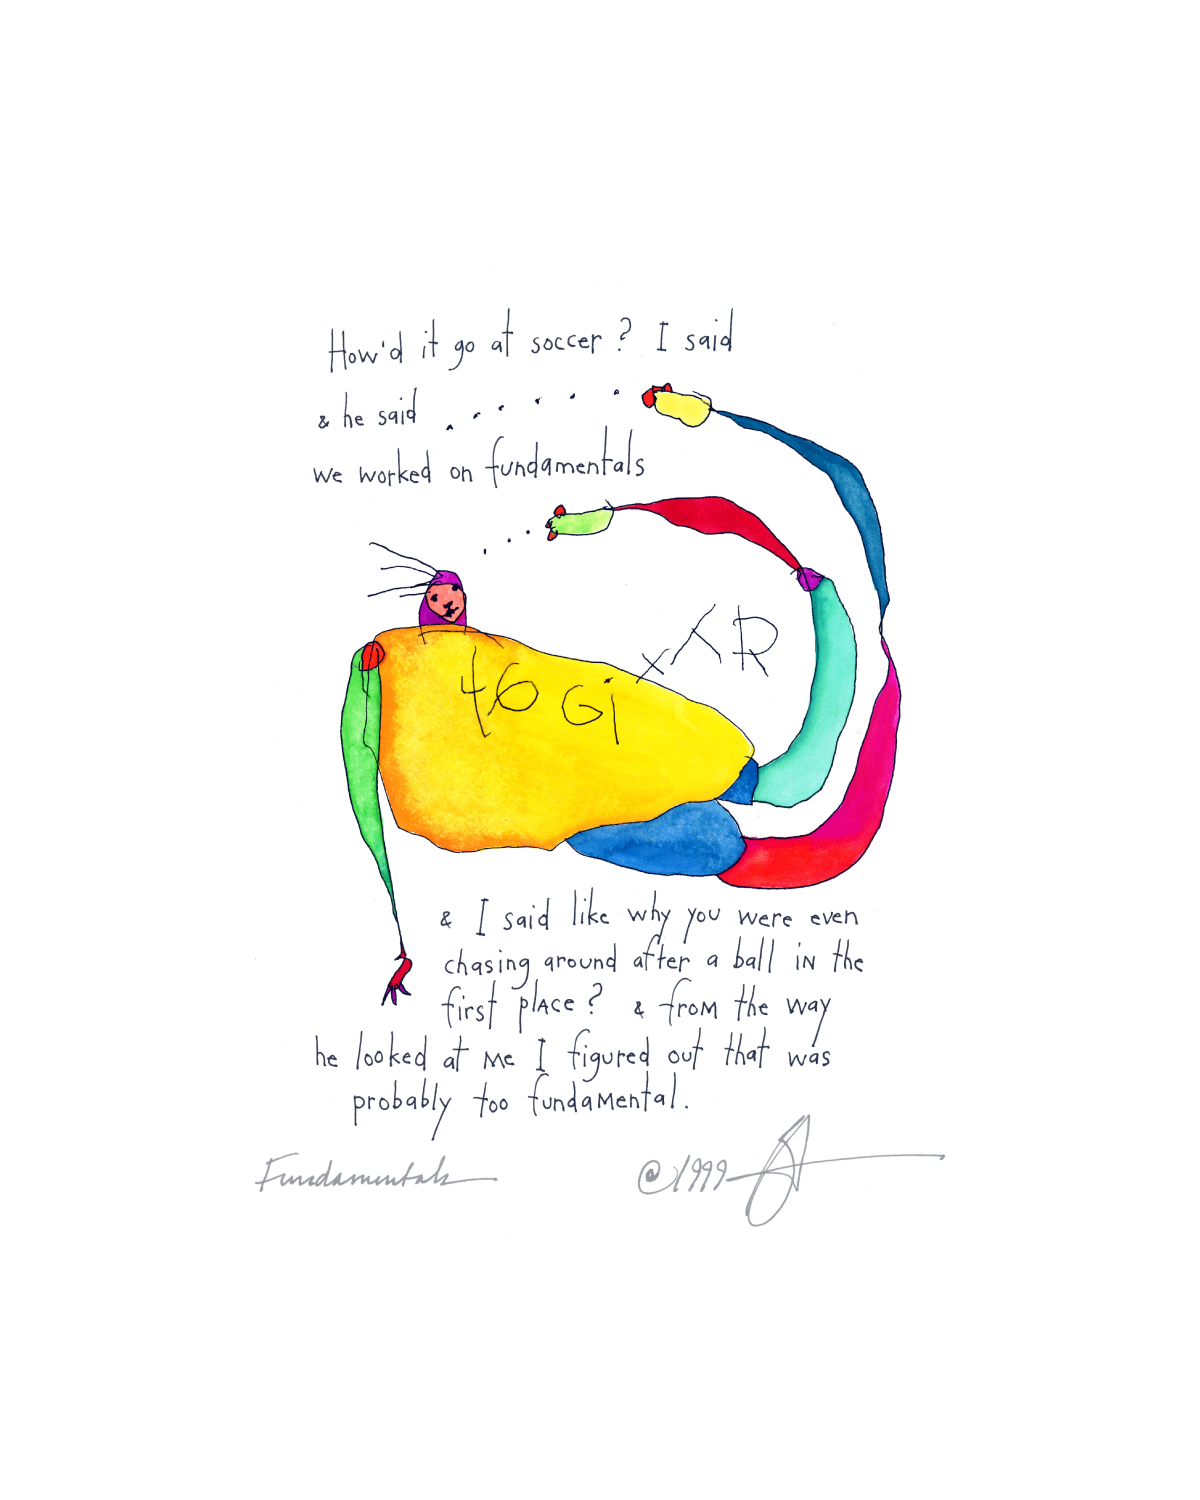 How'd it go at soccer? I said
& he said
we worked on fundamentals
46 Gi x
R
& I said like why you were even
chasing around after a ball in the
first place? & from the way
he looked at me I figured out that was
probably too fundamental.
Fundamentals
©1999